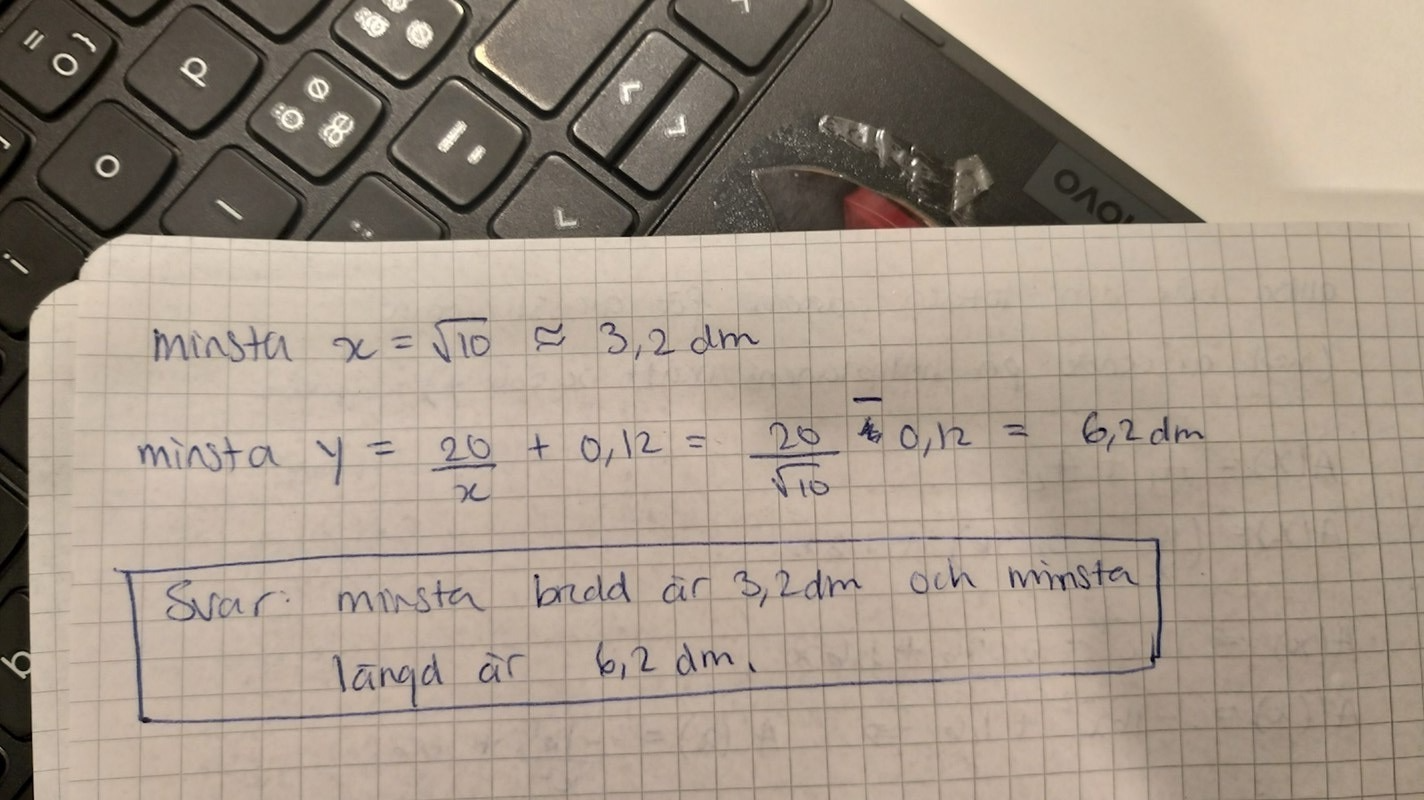 = 0 }
p
o
Ö Ø Æ
- _
i
b
OVO
minsta x = √10 ≈ 3,2 dm
minsta y = 20/x + 0,12 = 20/√10 - 0,12 = 6,2 dm
Svar: minsta bredd är 3,2 dm och minsta
längd är 6,2 dm.